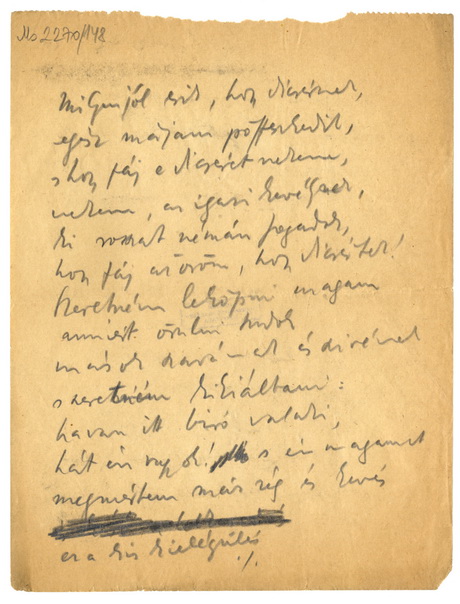 Ms 2270/148
Milyen jól esik, hogy dicsérnek,
egész májam pöffeszkedik,
s hogy fáj e dicséret nekem,
nekem, az igazi kevélynek,
ki rosszat némán fogadok,
hogy fáj az öröm, hogy dicsértek!
Szeretném leköpni magam
amiért örülni tudok
mások szavának és
szeretném kikiáltani:
ha van itt bíró valaki,
hát én vagyok! s én magamat
megmértem már rég és kevés
ez a kis kielégülés
./.